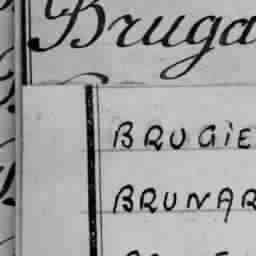 Bruga
BRUGiE
BRUNAR